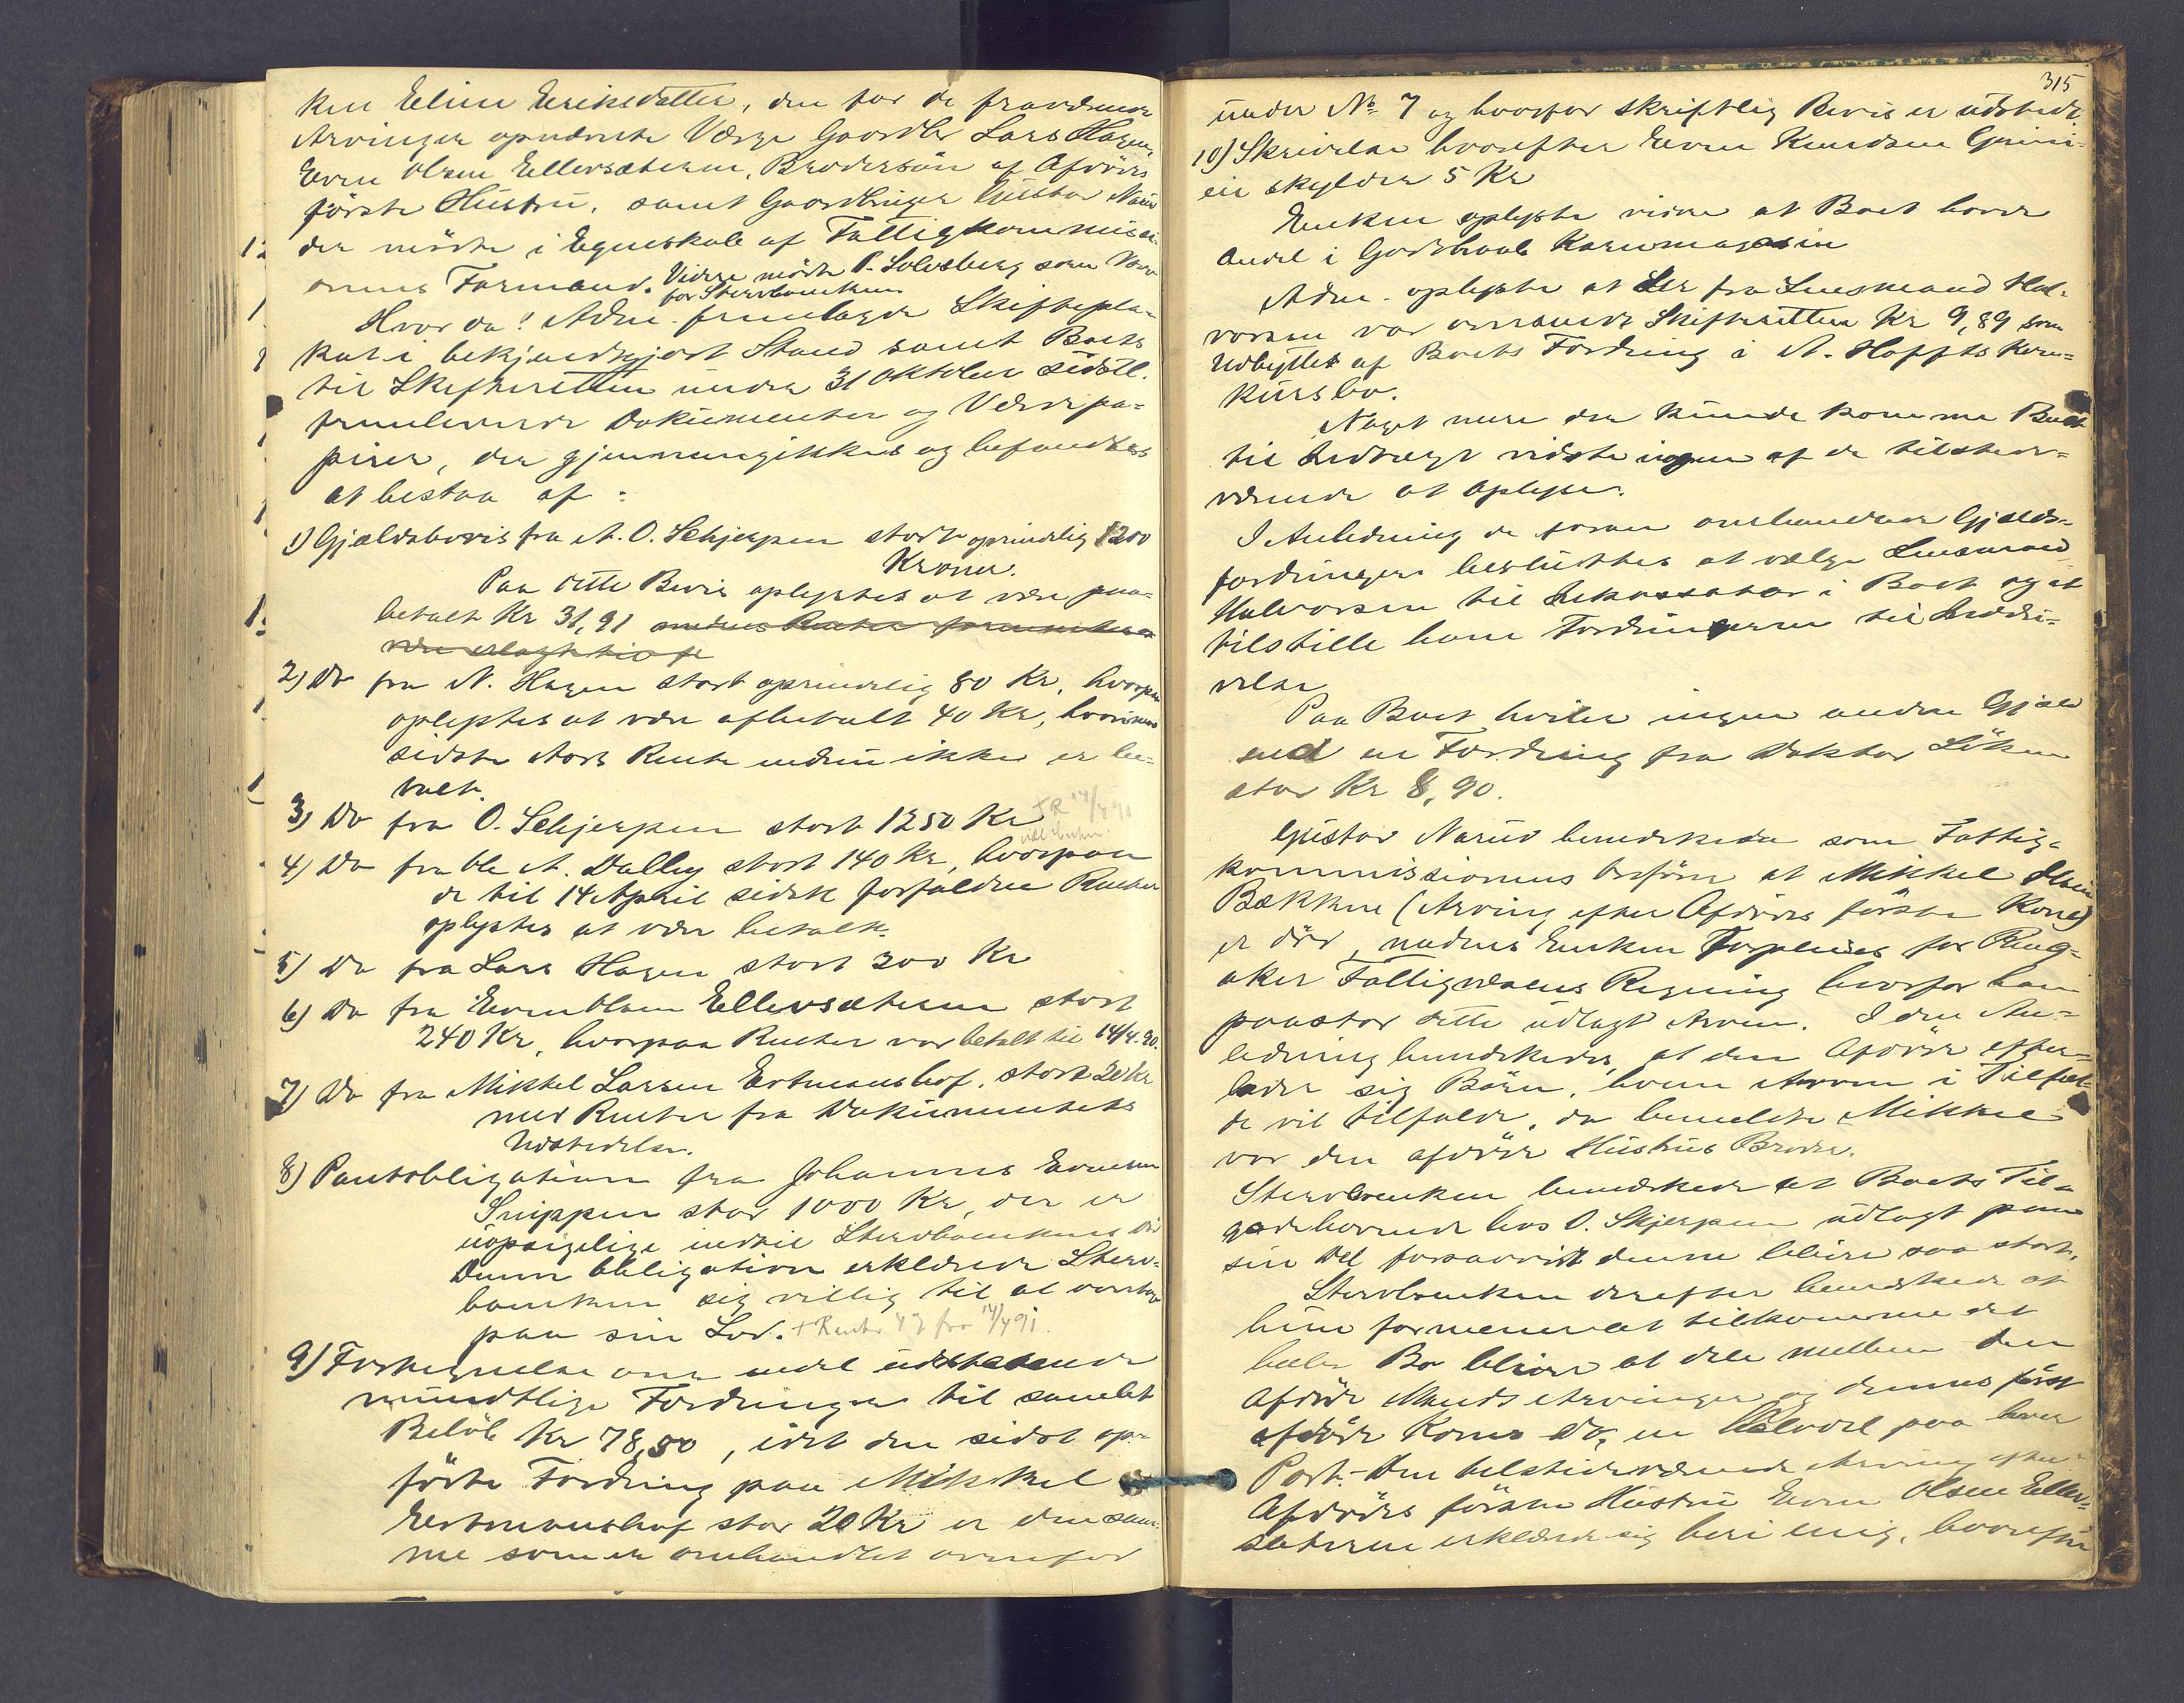 ken Eline Eriksdatter, den for de fraværende
Arvinger opnævnte Værge Gaardbr Lars Hagen,
Even Olsen Ellevsæteren, Brodersön af Afdödes
förste Hustru, samt Gaardbruger Gustav Narud
der mödte i Egenskab af Fattigkommissi-
onens Formand. Videre mödte P. Solvsberg som Værge
for Stervboenken
Hvor da! Adm. fremlagde Skiftepla-
kat i bekjendtgjort Stand samt Boets
til Skifteretten under 31 Oktober sidstl.
fremleverede Dokumenter og Værdipa-
pirer, der gjennemgikkes og befandtes
at bestaa af:
1) Gjældsbevis fra A. O. Schjerpen stort oprindelig 1200
Kroner.
Paa dette Bevis oplystes at være paa-
betalt Kr 31,91
2) Do fra N. Hagen stort oprindelig 80 Kr, hvorpaa
oplystes at være afbetalt 40 Kr, hvorimod
sidste Aars Rente endnu ikke er be-
talt.
3) Do fra O. Schjerpen stort 1250 Kr
4) Do fra Ole A. Dalby stort 140 Kr, hvorpaa
de til 14 April sidste forfaldne Renter
oplystes at være betalt.
5) Do fra Lars Hagen stort 300 Kr
6) Do fra Even Olsen Ellevsæteren stort
240 Kr, hvorpaa Renter var betalt til 14/4.90.
7) Do fra Mikkel Larsen Ertmanshof, stort 20 Kr
med Renter fra Dokumentets
Udstedelse.
8) Pantobligation fra Johannes Evensen
Snippen stor 1000 Kr, der er
uopsigelige indtil Stervboenkens Död
Denne Obligation erklærede Sterv-
boenken sig villig til at overtage
paa sin Lod. + Renter fra 14/4 91
9) Fortegnelse over endel udestaaende
mundtlige Fordringer til samlet
Belöb Kr 78,50, idet den sidst op-
förte Fordring paa Mikkel
Ertmanshof stor 20 Kr er den sam-
me som er omhandlet ovenfor
315
under No 7 og hvorfor skriftlig Bevis er udstedt.
10) Skrivelse hvorefter Even Knudsen Grini-
eie skylder 5 Kr
Enken oplyste videre at Boet havde
Andel i Godthaab Kornmagasin
Adm. oplyste at der fra Lensmand Hal-
vorsen var oversendt Skifteretten Kr 9,89 som
Udbyttet af Boets Fordring i A. Hoffs Kon-
kursbo.
Noget mere der kunde komme Boet
til Indtægt vidste ingen af de tilstede-
værende at oplyse.
I Anledning de foran omhandlede Gjælds-
fordringer besluttes at vælge Lensmand
Halvorsen til Inkassator i Boet og at
tilstille ham Fordringerne til Inddri-
velse
Paa Boet hviler ingen anden Gjæld
end en Fordring fra Doktor Löken
stor Kr 8,90.
Gustav Narud bemærkede som Fattig-
kommissionens Ordförer at Mikkel
Bækken (Arving efter Afdödes förste Kone)
er död, medens Enken forpleies for Ring-
aker Fattigvæsens Regning hvorfor han
paastod dette udlagt Arven. I den An-
ledning bemærkedes, at den Afdöde efter-
lader sig Börn, hvem Arven i Tilfæl-
de vil tilfalde, da bemeldte Mikkel
var den afdöde Hustrus Broder.
Stervboenken bemærkede at Boets Til-
godehavende hos O. Skjerpen udlagt paa
sin Del forsaavidt denne bliver saa stort.
Stervboenken derefter bemærkede at
hun formener at tilkomme det
halve Bo bliver at dele mellem den
afdöde Mands Arvinger og dennes först
afdöde Kones Do, en Halvdel paa hver
Part. Den tilstedeværende Arving efter
Afdödes förste Hustru Even Olsen Ellev-
sæteren erklærede sig heri enig, hvorefter